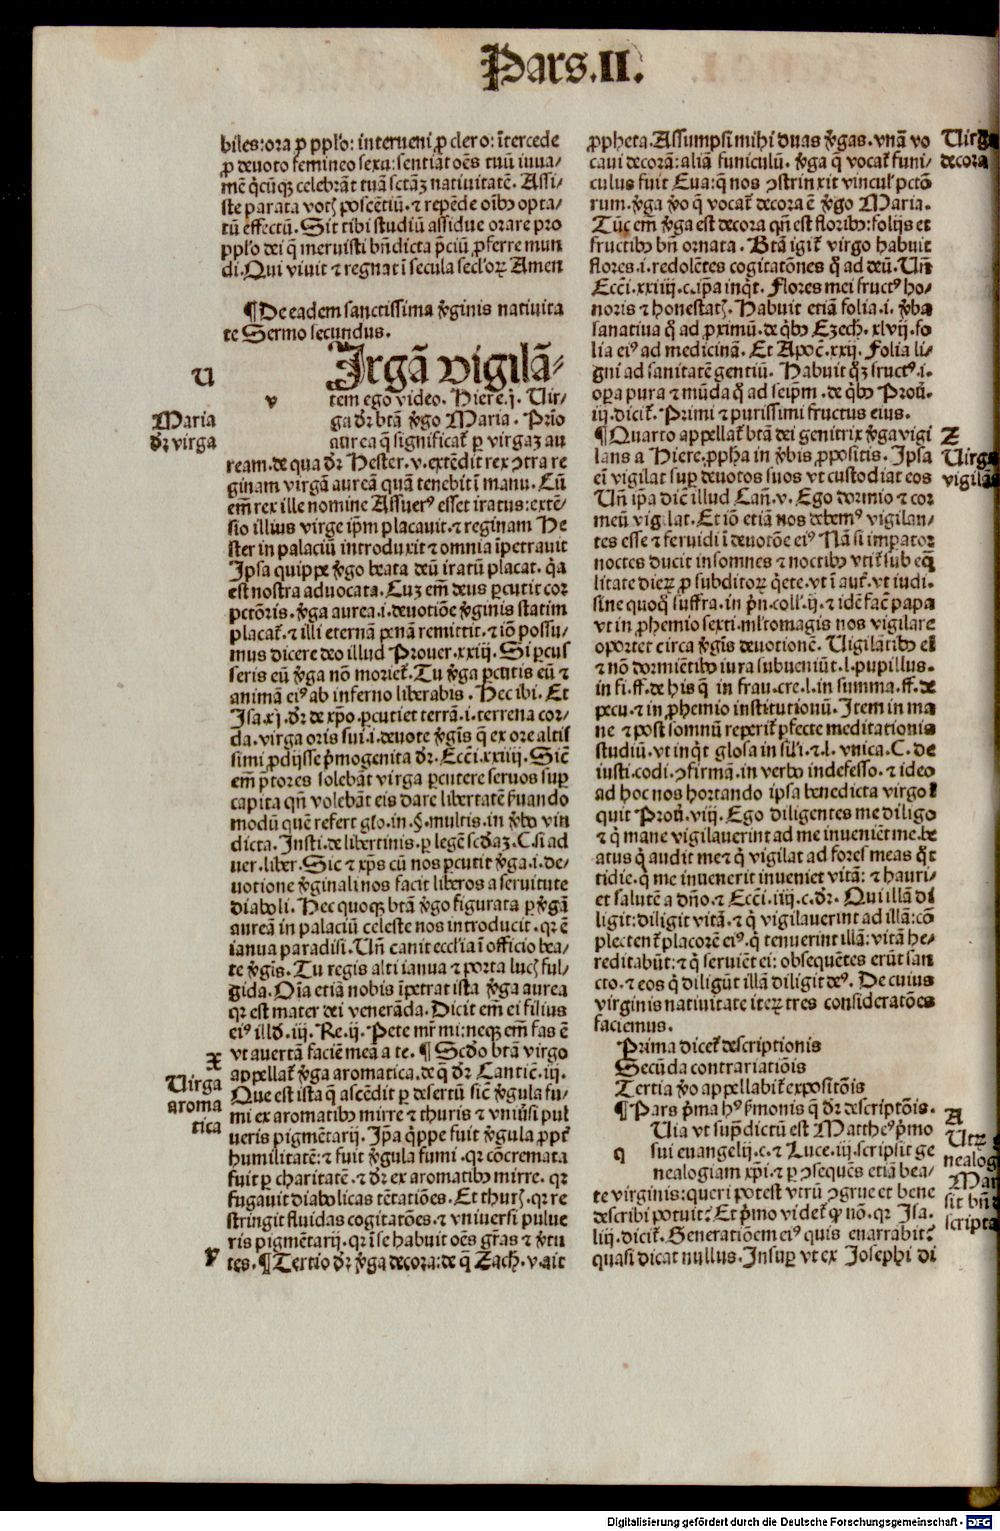 Pars.II.
biles:ora ꝓ pplo: interueni ꝓ clero: ītercede
ꝓ deuoto femineo sexu: sentiāt oēs tuū iuua-
mē q̄cūqꝫ celebrāt tuā sctāꝫ natiuitatē. Assi-
ste parata votꝭ poscētiū. ⁊ repēde oībꝰ opta-
tū effectū. Sit tibi studiū assidue orare pro
pplo dei q̄ meruisti bn̄dicta p̄ciū ꝓferre mun
di. Qui viuit ⁊ regnat ī secula seclorꝝ Amen
¶ De eadem sanctissima v̄ginis natiuita
te Sermo secundus.
U
Irgā vigilā-
v
tem ego video. Hiere.j. Vir-
Maria
dr̄ virga
ga dr̄ btā v̄go Maria. Prīo
aurea q̄ significat̄ ꝑ virgaꝫ au
ream. de qua dr̄ Hester. v. extēdit rex ꝯtra re
ginam virgā aureā quā tenebit ī manu. Cū
em̄ rex ille nomine Assuerꝰ esset iratus: extē-
sio illius virge ip̄m placauit. ⁊ reginam He
ster in palaciū introduxit ⁊ omnia īpetrauit
Ipsa quippe v̄go beata deū iratū placat. q̄a
est nostra aduocata. Cuꝫ em̄ deus ꝑcutit cor
pctōris. v̄ga aurea .i. deuotiōe v̄ginis statim
placat̄. ⁊ illi eternā penā remittit. ⁊ iō possu-
mus dicere deo illud Prouer.xxiij. Si ꝑcus
seris eū v̄ga nō moriet̄. Tu v̄ga ꝑcutis eū ⁊
animā eiꝰ ab inferno liberabis. Hec ibi. Et
Isa.xj. dr̄ de xp̄o. ꝑcutiet terrā .i. terrena cor-
da. virga oris sui .i. deuote v̄gīs q̄ ex ore altis
simi ꝓdijsse p̄mogenita dr̄. Ecci.xxiiij. Sic̄
em̄ p̄tores solebāt virga ꝑcutere seruos suꝑ
capita qn̄ volebāt eis dare libertatē ẜuando
modū quē refert glo. in .§. multis. in v̄bo vin
dicta. Insti. de libertinis. ꝑ legē scd̄aꝫ. C. si ad
uer. liber. Sic ⁊ xp̄s cū nos ꝑcutit v̄ga .i. de-
uotione v̄ginali nos facit liberos a seruitute
diaboli. Hec quoqꝫ btā v̄go figurata ꝑ v̄gā
aureā in palaciū celeste nos introducit. qꝛ ē
ianua paradisi. Un̄ canit ecclia ī officio bea-
te v̄gīs. Tu regis alti ianua ⁊ porta lucꝭ ful-
gida. Oīa etiā nobis īpetrat ista v̄ga aurea
qꝛ est mater dei venerāda. Dicit em̄ ei filius
eiꝰ illd̄. iij. Re. ij. Pete mr̄ mi: neqꝫ em̄ fas ē
x
Virga
aroma
tica
vt auertā faciē meā a te. ¶ Scd̄o btā virgo
appellat̄ v̄ga aromatica. de q̄ dr̄ Cantic̄. iij.
Que est ista q̄ ascēdit ꝑ desertū sic̄ v̄gula fu-
mi ex aromatibꝰ mirre ⁊ thuris ⁊ vniūsi pul
ueris pigmētarij. Ip̄a q̄ppe fuit v̄gula ꝓpt̄
humilitatē: ⁊ fuit v̄gula fumi. qꝛ cōcremata
fuit ꝑ charitatē. ⁊ dr̄ ex aromatibꝰ mirre. qꝛ
fugauit diabolicas tētatiōes. Et thurꝭ. qꝛ re
stringit fluidas cogitatōes. ⁊ vniuersi pulue
ris pigmētarij. qꝛ ī se habuit oēs gr̄as ⁊ v̄tu
y
tes. ¶ Tertio dr̄ v̄ga decora: de q̄ Zach. v. ait
ꝓpheta. Assumpsi mihi duas v̄gas. vnā vo
Virga
decora
caui decorā: aliā funiculū. v̄ga q̄ vocat̄ funi-
culus fuit Eua: q̄ nos ꝯstrinxit vinculꝭ pctō
rum. v̄ga v̄o q̄ vocat̄ decora ē v̄go Maria.
Tūc em̄ v̄ga est decora qn̄ est floribꝰ: folijs et
fructibꝰ bn̄ ornata. Btā igit̄ virgo habuit
flores .i. redolētes cogitatōnes q̄ ad deū. Un̄
Ecci.xxiiij. c. ip̄a inq̄t. Flores mei fructꝰ ho-
noris ⁊ honestatꝭ. Habuit etiā folia .i. v̄ba
sanatiua q̄ ad ꝓximū. de q̄bꝰ Ezech. xlvij. fo
lia eiꝰ ad medicinā. Et Apoc̄. xxij. Folia li-
gni ad sanitatē gentiū. Habuit q̄ꝫ fructꝰ .i.
oꝑa pura ⁊ mūda q̄ ad seip̄m. de q̄bꝰ Prou̅.
iij. dicit̄. Primi ⁊ purissimi fructus eius.
z
Virga
vigilās
¶ Quarto appellat̄ btā dei genitrix v̄ga vigi
lans a Hiere. ꝓpha in v̄bis ꝓpositis. Ipsa
ei̅ vigilat suꝑ deuotos suos vt custodiat eos
Un̄ ip̄a dic̄ illud Can̄. v. Ego dormio ⁊ cor
meū vigilat. Et iō etiā nos debemꝰ vigilan-
tes esse ⁊ feruidi ī deuotōe eiꝰ Nā si imperator
noctes ducit insomnes ⁊ noctibꝰ vtit̄ sub eq̄
litate dierꝝ ꝓ subditorꝝ q̄ete. vt ī aut̄. vt iudi.
sine quoq̄ suffra. in p̄n. coll̄. ij. ⁊ idē fac̄ papa
vt in ꝓhemio sexti. ml̄tomagis nos vigilare
oportet circa v̄gīs deuotionē. Vigilātibꝰ ei̅
⁊ nō dormiētibꝰ iura subueniūt. l. pupillus.
in fi. ff. de his q̄ in frau. cre. l. in summa. ff. de
pecu. ⁊ in ꝓhemio institutionū. Item in ma
ne ⁊ post somnū reperit̄ ꝑfecte meditationis
studiū. vt inq̄t glosa in sīli. ⁊ .l. vnica. C. de
iusti. codi. ꝯfirmā. in verbo indefesso. ⁊ ideo
ad hoc nos hortando ipsa benedicta virgo ī
quit Prou̅. viij. Ego diligentes me diligo
⁊ q̄ mane vigilauerint ad me inueniēt me. be
atus q̄ audit me ⁊ q̄ vigilat ad fores meas q̄t
tidie. q̄ me inuenerit inueniet vitā: ⁊ hauri-
et salutē a dn̄o. ⁊ Ecci. iiij. c. dr̄. Qui illā di
ligit: diligit vitā. ⁊ q̄ vigilauerint ad illā: cō
plectent̄ placorē eiꝰ. q̄ tenuerint illā: vitā he-
reditabūt: ⁊ q̄ seruiēt ei: obsequētes erūt san
cto. ⁊ eos q̄ diligūt illā diligit deꝰ. De cuius
virginis natiuitate iteꝝ tres consideratōes
faciemus.
Prima dicet̄ descriptionis
Secūda contrariatiōis
Tertia v̄o appellabit̄ expositōis
¶ Pars p̄ma hꝰ ẜmonis q̄ dr̄ descriptōis.
A
q
Uia vt sup̄dictū est Mattheꝰ p̄mo
sui euangelij. c. ⁊ Luce. iij. scripsit ge
nealogiam xp̄i. ⁊ ꝑ ꝯsequēs etiā bea-
Utꝝ
nealog
Mar
sit bn̄
scripta
te virginis: queri potest vtrū ꝯgrue et bene
describi potuit: Et p̄mo videt̄ ꝙ nō. qꝛ Isa.
liij. dicit̄. Generatiōem eiꝰ quis enarrabit:
quasi dicat nullus. Insuꝑ vt ex Josephi di
Digitalisierung gefördert durch die Deutsche Forschungsgemeinschaft - DFG